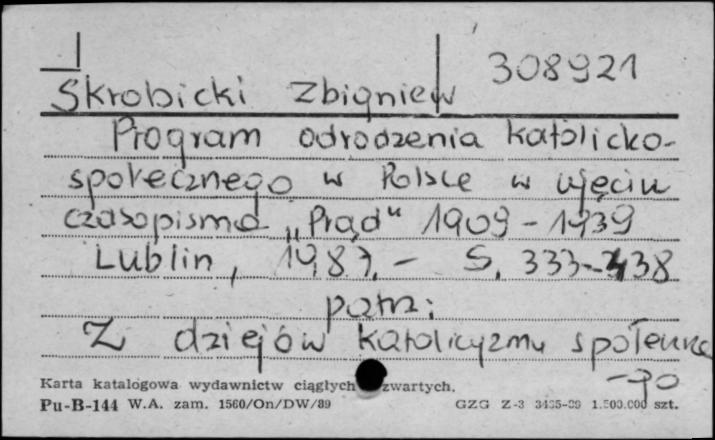 308921
Skrobicki Zbigniew
Program odrodzenia katolicko-
społecznego w Polsce w ujęciu
czasopisma „Prąd" 1909 - 1939
Lublin, 1987. - S. 333-438
patrz:
Z dziejów katolicyzmu społeczne
-go
Karta katalogowa wydawnictw ciągłych zwartych.
Pu-B-144 W.A. zam. 1560/On/DW/89 GZG Z-3 3435-89 1.500.000 szt.